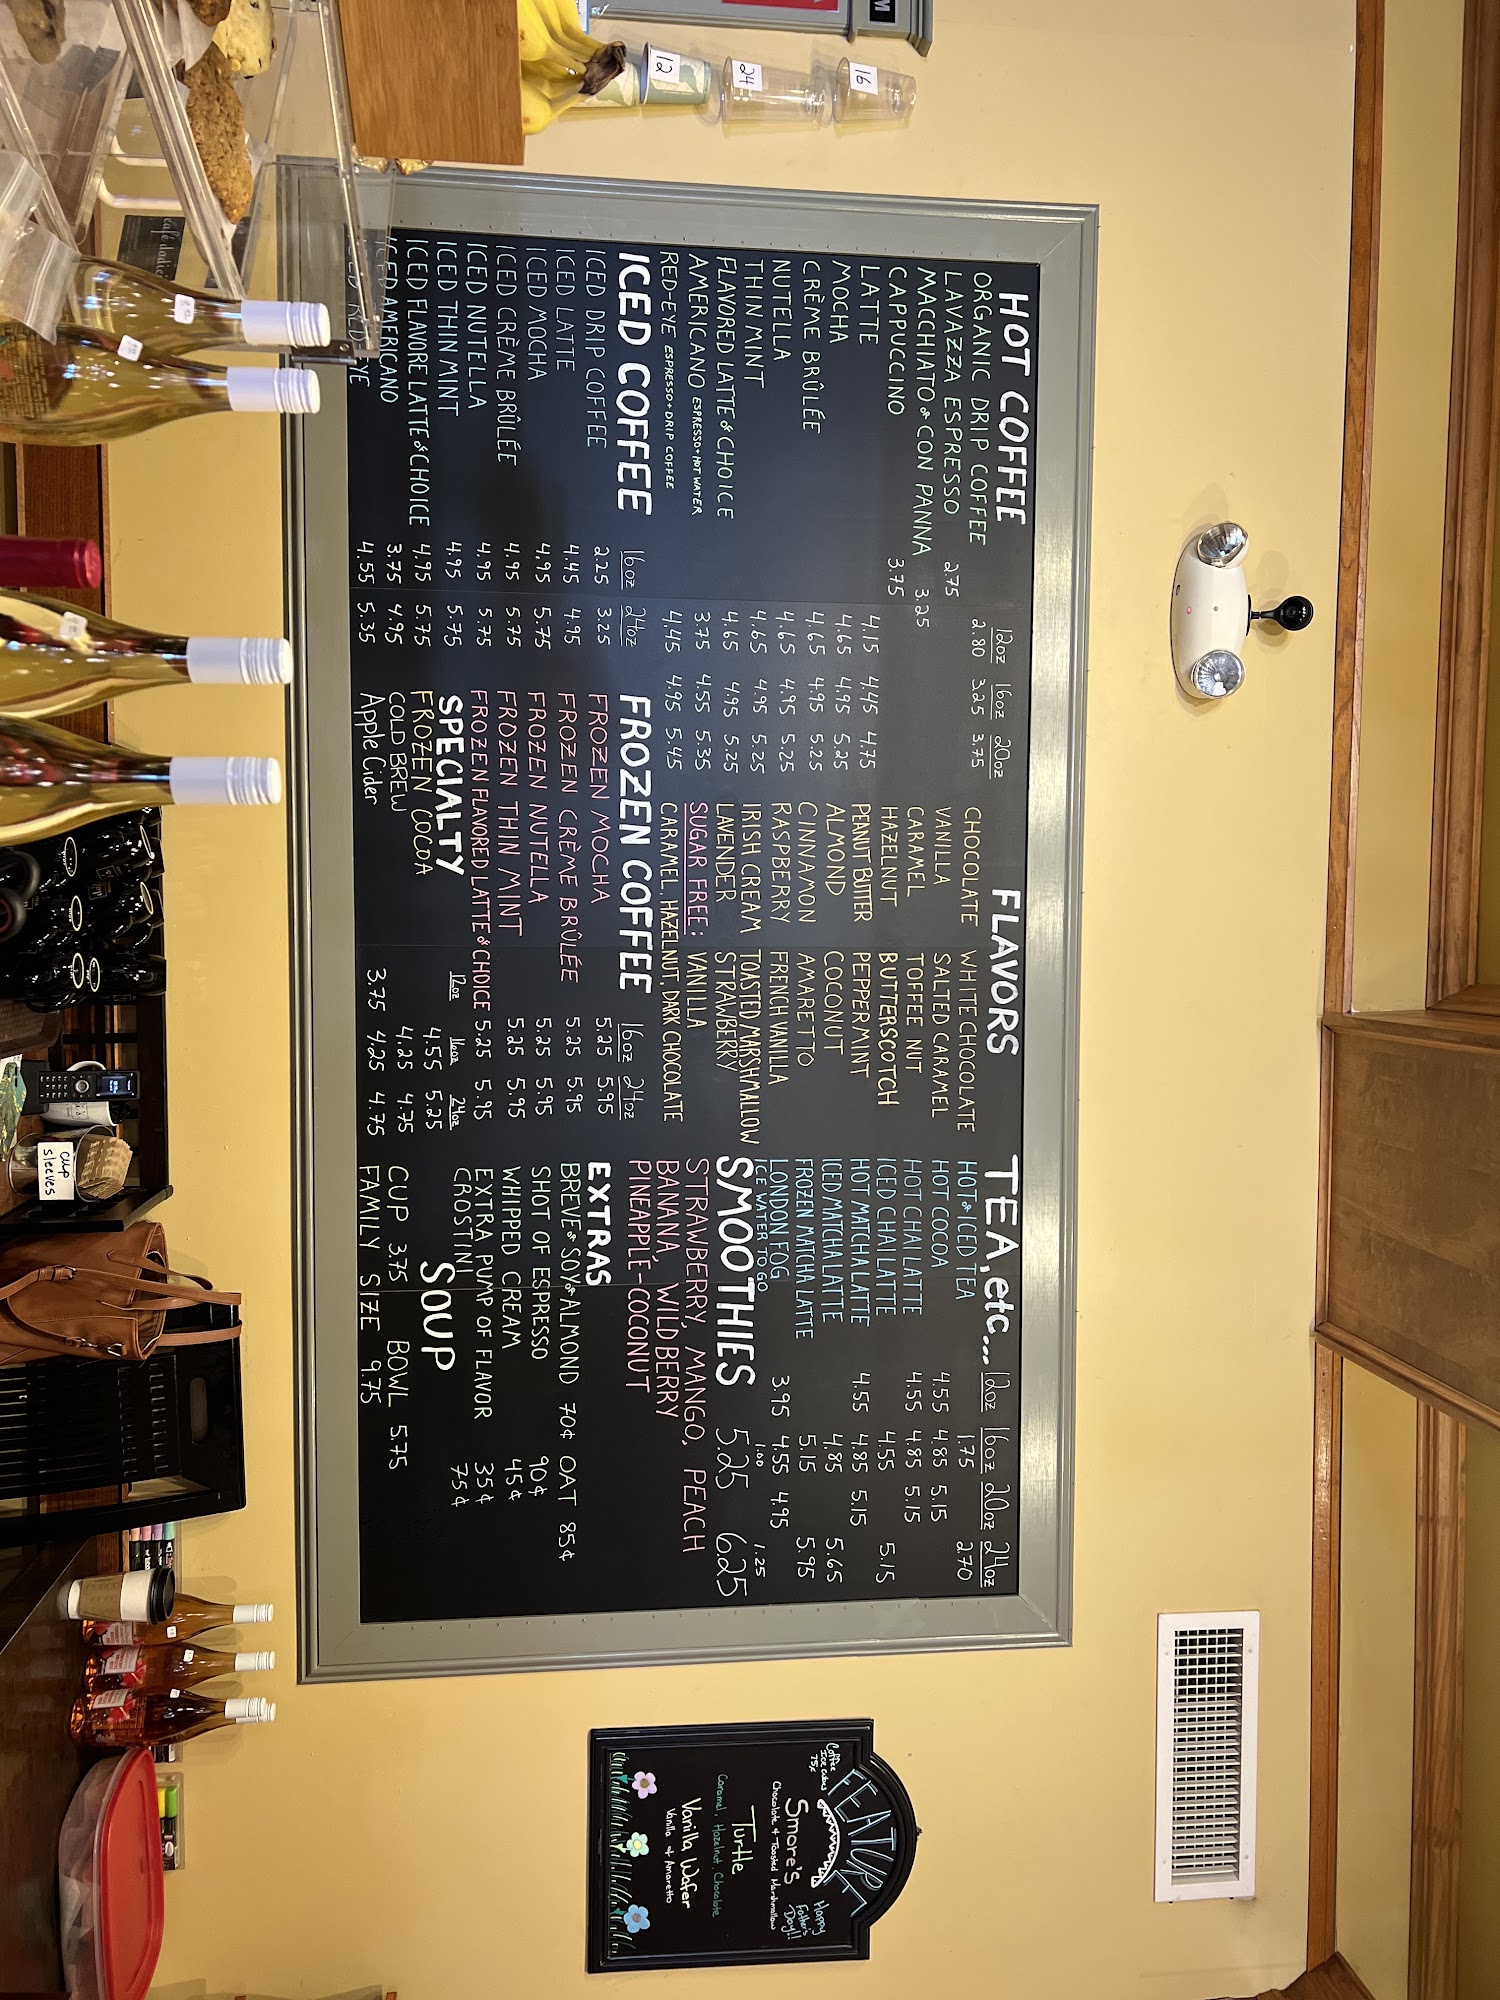 HOT COFFEE
12oz 16oz 20oz
ORGANIC DRIP COFFEE 2.80 3.25 3.75
LAVAZZA ESPRESSO 2.75
MACCHIATO or CON PANNA 3.25
CAPPUCCINO 3.75
LATTE 4.15 4.45 4.75
MOCHA 4.65 4.95 5.25
CRÈME BRÛLÉE 4.65 4.95 5.25
NUTELLA 4.65 4.95 5.25
THIN MINT 4.65 4.95 5.25
FLAVORED LATTE of CHOICE 4.65 4.95 5.25
AMERICANO ESPRESSO + HOT WATER 3.75 4.55 5.35
RED-EYE ESPRESSO + DRIP COFFEE 4.45 4.95 5.45
ICED COFFEE 16oz 24oz
ICED DRIP COFFEE 2.25 3.25
ICED LATTE 4.45 4.95
ICED MOCHA 4.95 5.75
ICED CRÈME BRÛLÉE 4.95 5.75
ICED NUTELLA 4.95 5.75
ICED THIN MINT 4.95 5.75
ICED FLAVORE LATTE of CHOICE 4.95 5.75
ICED AMERICANO 3.75 4.95
ICED RED EYE 4.55 5.35
FLAVORS
CHOCOLATE WHITE CHOCOLATE
VANILLA SALTED CARAMEL
CARAMEL TOFFEE NUT
HAZELNUT BUTTERSCOTCH
PEANUT BUTTER PEPPERMINT
ALMOND COCONUT
CINNAMON AMARETTO
RASPBERRY FRENCH VANILLA
IRISH CREAM TOASTED MARSHMALLOW
LAVENDER STRAWBERRY
SUGAR FREE: VANILLA
CARAMEL, HAZELNUT, DARK CHOCOLATE
FROZEN COFFEE 16oz 24oz
FROZEN MOCHA 5.25 5.95
FROZEN CRÈME BRÛLÉE 5.25 5.95
FROZEN NUTELLA 5.25 5.95
FROZEN THIN MINT 5.25 5.95
FROZEN FLAVORED LATTE of CHOICE 5.25 5.95
SPECIALTY 12oz 16oz 24oz
FROZEN COCOA 4.55 5.25
COLD BREW 4.25 4.75
Apple Cider 3.75 4.25 4.75
TEA, etc... 12oz 16oz 20oz 24oz
HOT or ICED TEA 1.75 2.70
HOT COCOA 4.55 4.85 5.15
HOT CHAI LATTE 4.55 4.85 5.15
ICED CHAI LATTE 4.55 5.15
HOT MATCHA LATTE 4.55 4.85 5.15
ICED MATCHA LATTE 4.85 5.65
FROZEN MATCHA LATTE 5.15 5.95
LONDON FOG 3.95 4.55 4.95
ICE WATER TO GO 1.00 1.25
SMOOTHIES 5.25 6.25
STRAWBERRY, MANGO, PEACH
BANANA, WILD BERRY
PINEAPPLE-COCONUT
EXTRAS
BREVE or SOY or ALMOND 70¢ OAT 85¢
SHOT OF ESPRESSO 90¢
WHIPPED CREAM 45¢
EXTRA PUMP OF FLAVOR 35¢
CROSTINI 75¢
SOUP
CUP 3.75 BOWL 5.75
FAMILY SIZE 9.75
FEATURE
Coffee
Ice cubes
75¢
Happy
Father's
Day!!
Smore's
Chocolate + Toasted Marshmallow
Turtle
Caramel, Hazelnut, Chocolate
Vanilla Wafer
Vanilla & Amaretto
12
24
16
M
cup
sleeves